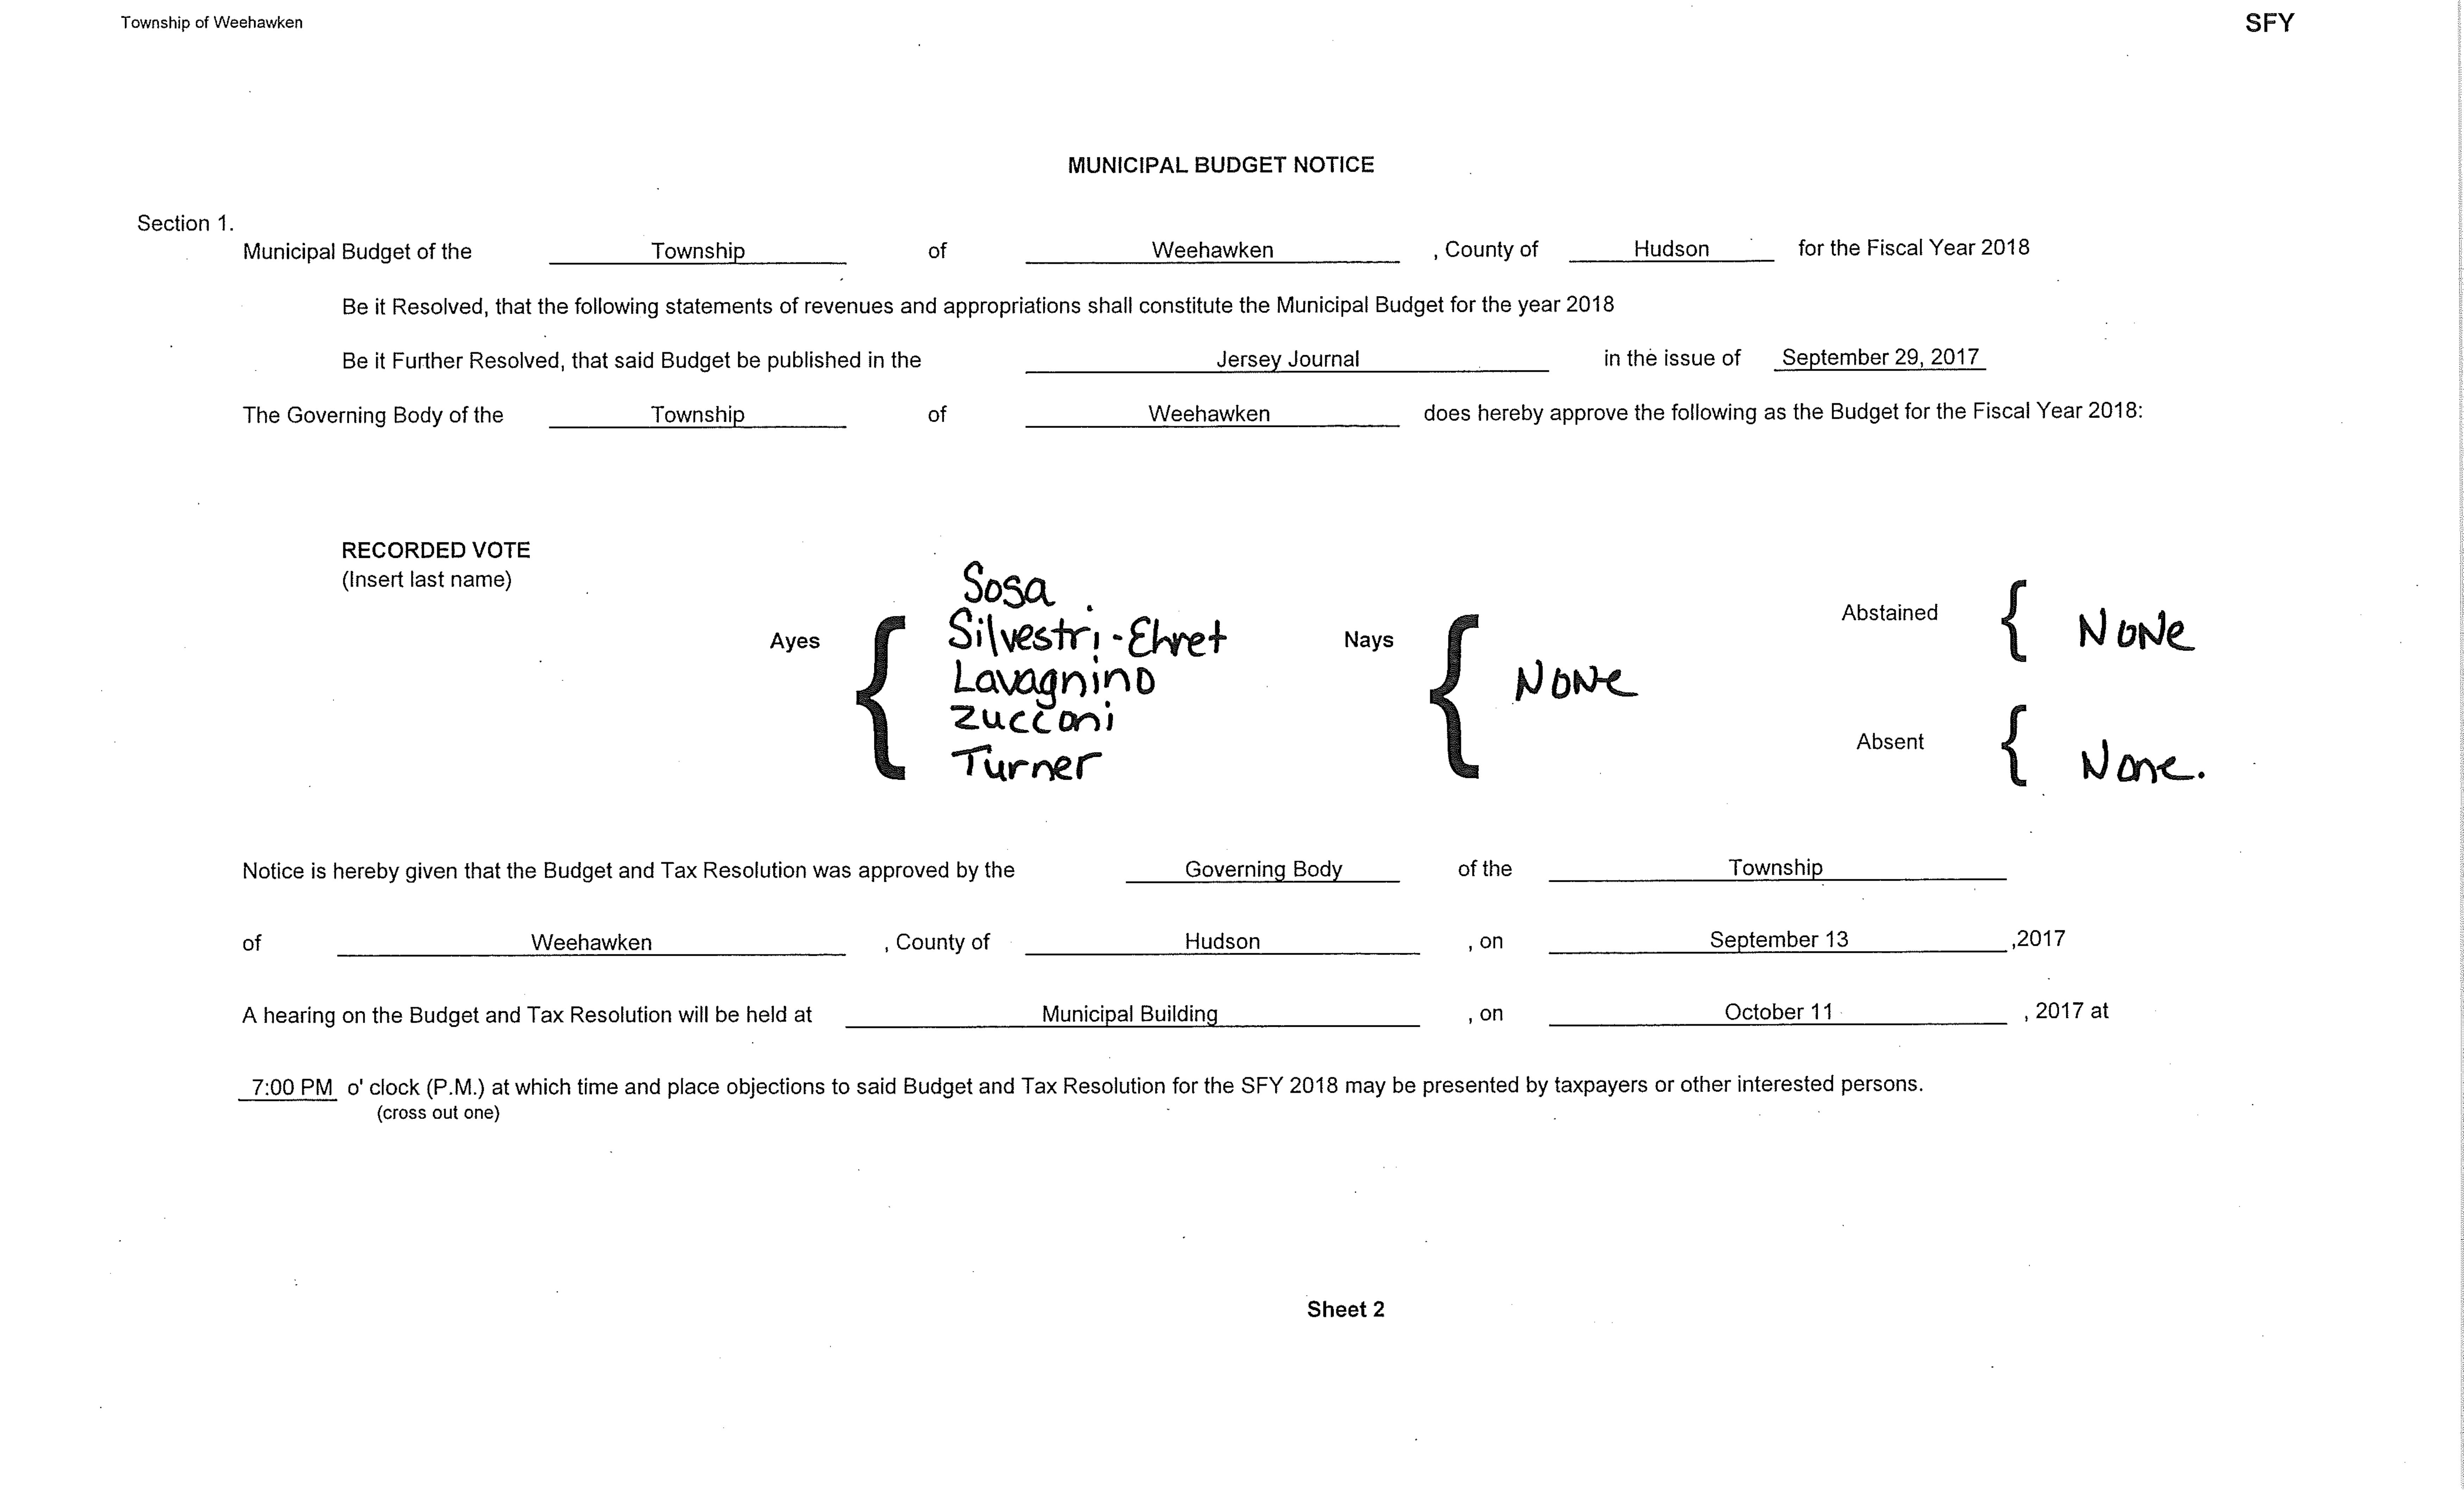 Township of Weehawken SFY
MUNICIPAL BUDGET NOTICE
Section 1.
Municipal Budget of the Township of Weehawken , County of Hudson for the Fiscal Year 2018
Be it Resolved, that the following statements of revenues and appropriations shall constitute the Municipal Budget for the year 2018
Be it Further Resolved, that said Budget be published in the Jersey Journal in the issue of September 29, 2017
The Governing Body of the Township of Weehawken does hereby approve the following as the Budget for the Fiscal Year 2018:
RECORDED VOTE
(Insert last name)
Ayes
Sosa
Silvestri-Ehret
Lavagnino
Zucconi
Turner
Nays
None
Abstained
None
Absent
None.
Notice is hereby given that the Budget and Tax Resolution was approved by the Governing Body of the Township
of Weehawken , County of Hudson , on September 13 ,2017
A hearing on the Budget and Tax Resolution will be held at Municipal Building , on October 11 , 2017 at
7:00 PM o' clock (P.M.) at which time and place objections to said Budget and Tax Resolution for the SFY 2018 may be presented by taxpayers or other interested persons.
(cross out one)
Sheet 2